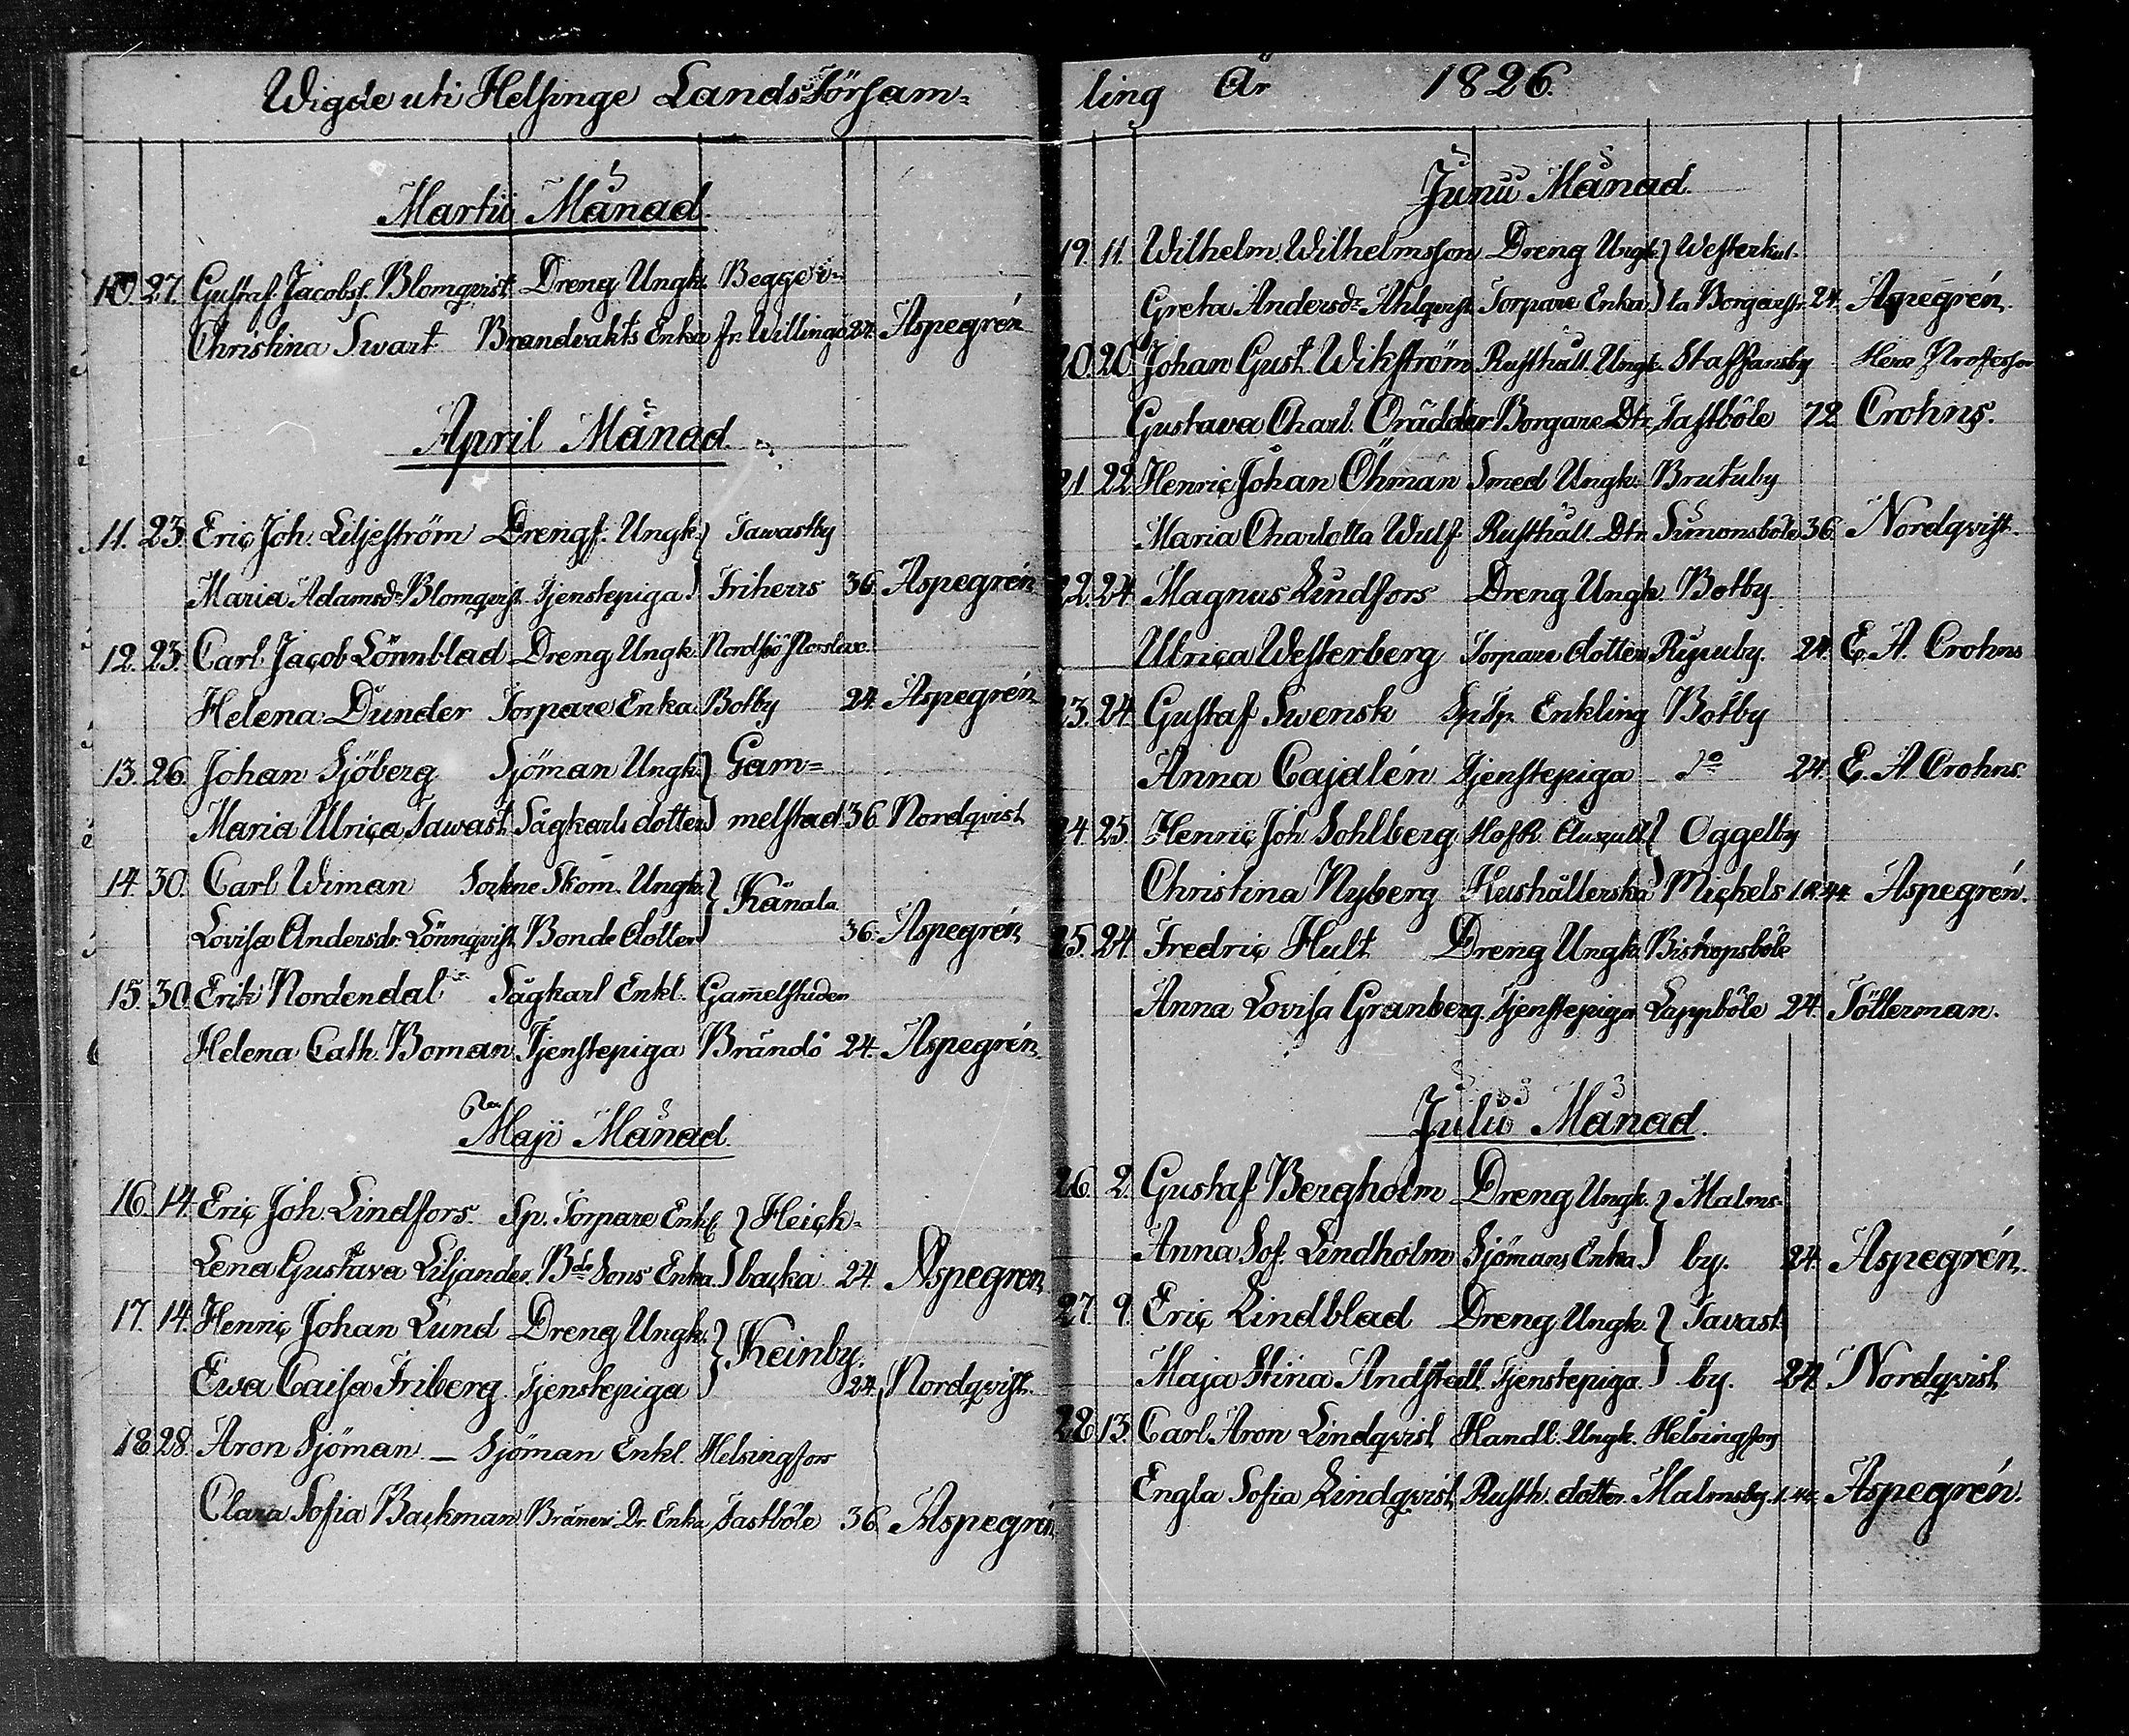 Wigde uti Helsinge Lands Försam=
Martii Månad.
10. 27. Gustaf Jacobss. Blomqvist Dreng Ungk. Begge i
Christina Swart Brandvakts Enka fr. Willinge 24. Aspegrén
April Månad.
11. 23. Eric Joh. Liljeström Drengs. Ungk. Tawastby
Maria Adamsdr Blomqvist Tjenstepiga Friherrs 36. Aspegrén
12. 23. Carl Jacob Lönnblad Dreng Ungk. Nordsjö
Helena Dunder Torpare Enka Botby 24. Aspegrén
13. 26. Johan Sjöberg Sjöman Ungk. Gam=
Maria Ulrica Tawast Sågkarls dotter melstad 36 Nordqvist
14. 30. Carl Wiman Sockne Skom. Ungk. Kånala
Lovisa Andersdr. Lönnqvist Bonde dotter 36. Aspegrén
15. 30. Erik Nordendal Sågkarl Enkl. Gam̄elstaden
Helena Cath. Boman Tjenstepiga Brändö 24. Aspegrén
Maji Månad.
16. 14. Eric Joh. Lindfors. Sp. Torpare Enkl Heick=
Lena Gustava Liljander. Bde Sons Enka. backa 24. Aspegren
17. 14. Henric Johan Lund Dreng Ungk. Keinby.
Ewa Caisa Friberg. Tjenstepiga 24. Nordqvist
18. 28. Aron Sjöman — Sjöman Enkl. Helsingfors
Clara Sofia Backman Dr. Enka Tastböle 36. Aspegrén
ling År 1826.
Junii Månad
19. 11. Wilhelm Wilhelmsson Dreng Ungk. Westerkul-
Greta Andersdr Ahlqvist Torpare Enka la Borgarstr. 24. Aspegrén.
20. 20. Johan Gust. Wikström Rusthåll. Ungk. Staffansby Herr Professor
Gustava Charl. Orädder Borgare Dtr. Tastböle 72 Crohns.
21. 22. Henric Johan Öhman Smed Ungk. Brutuby
Maria Charlotta Wulf Rusthåll. Dtr. Simonsböle 36. Nordqvist.
22. 24. Magnus Lundfors Dreng Ungk. Botby
Ulrica Westerberg Torpare dotter 24. E. A. Crohns
23. 24. Gustaf Swensk Enkling Botby
Anna Cajalén Tjenstepiga do 24. E. A. Crohns.
24. 25. Henric Joh. Sohlberg HofR. Auscult. Oggelby
Christina Nyberg Hushållerska Mickels 1.R. 44. Aspegrén.
25. 24. Fredric Hult Dreng Ungk. Biskopsböle
Anna Lovisa Granberg. Tjenstepiga Lappböle 24. Tötterman.
Julii Månad.
26. 2. Gustaf Bergholm Dreng Ungk. Malms-
Anna Sof. Lindholm Sjömans Enka by. 24. Aspegrén.
27. 9. Eric Lindblad Dreng Ungk. Tavast
Maja Stina Andstedt Tjenstepiga. by. 24. Nordqvist
28. 13. Carl Aron Lindqvist Handl. Ungk. Helsingfors
Engla Sofia Lindqvist Rusth. dotter. Malmsby. 1. 44. Aspegrén.